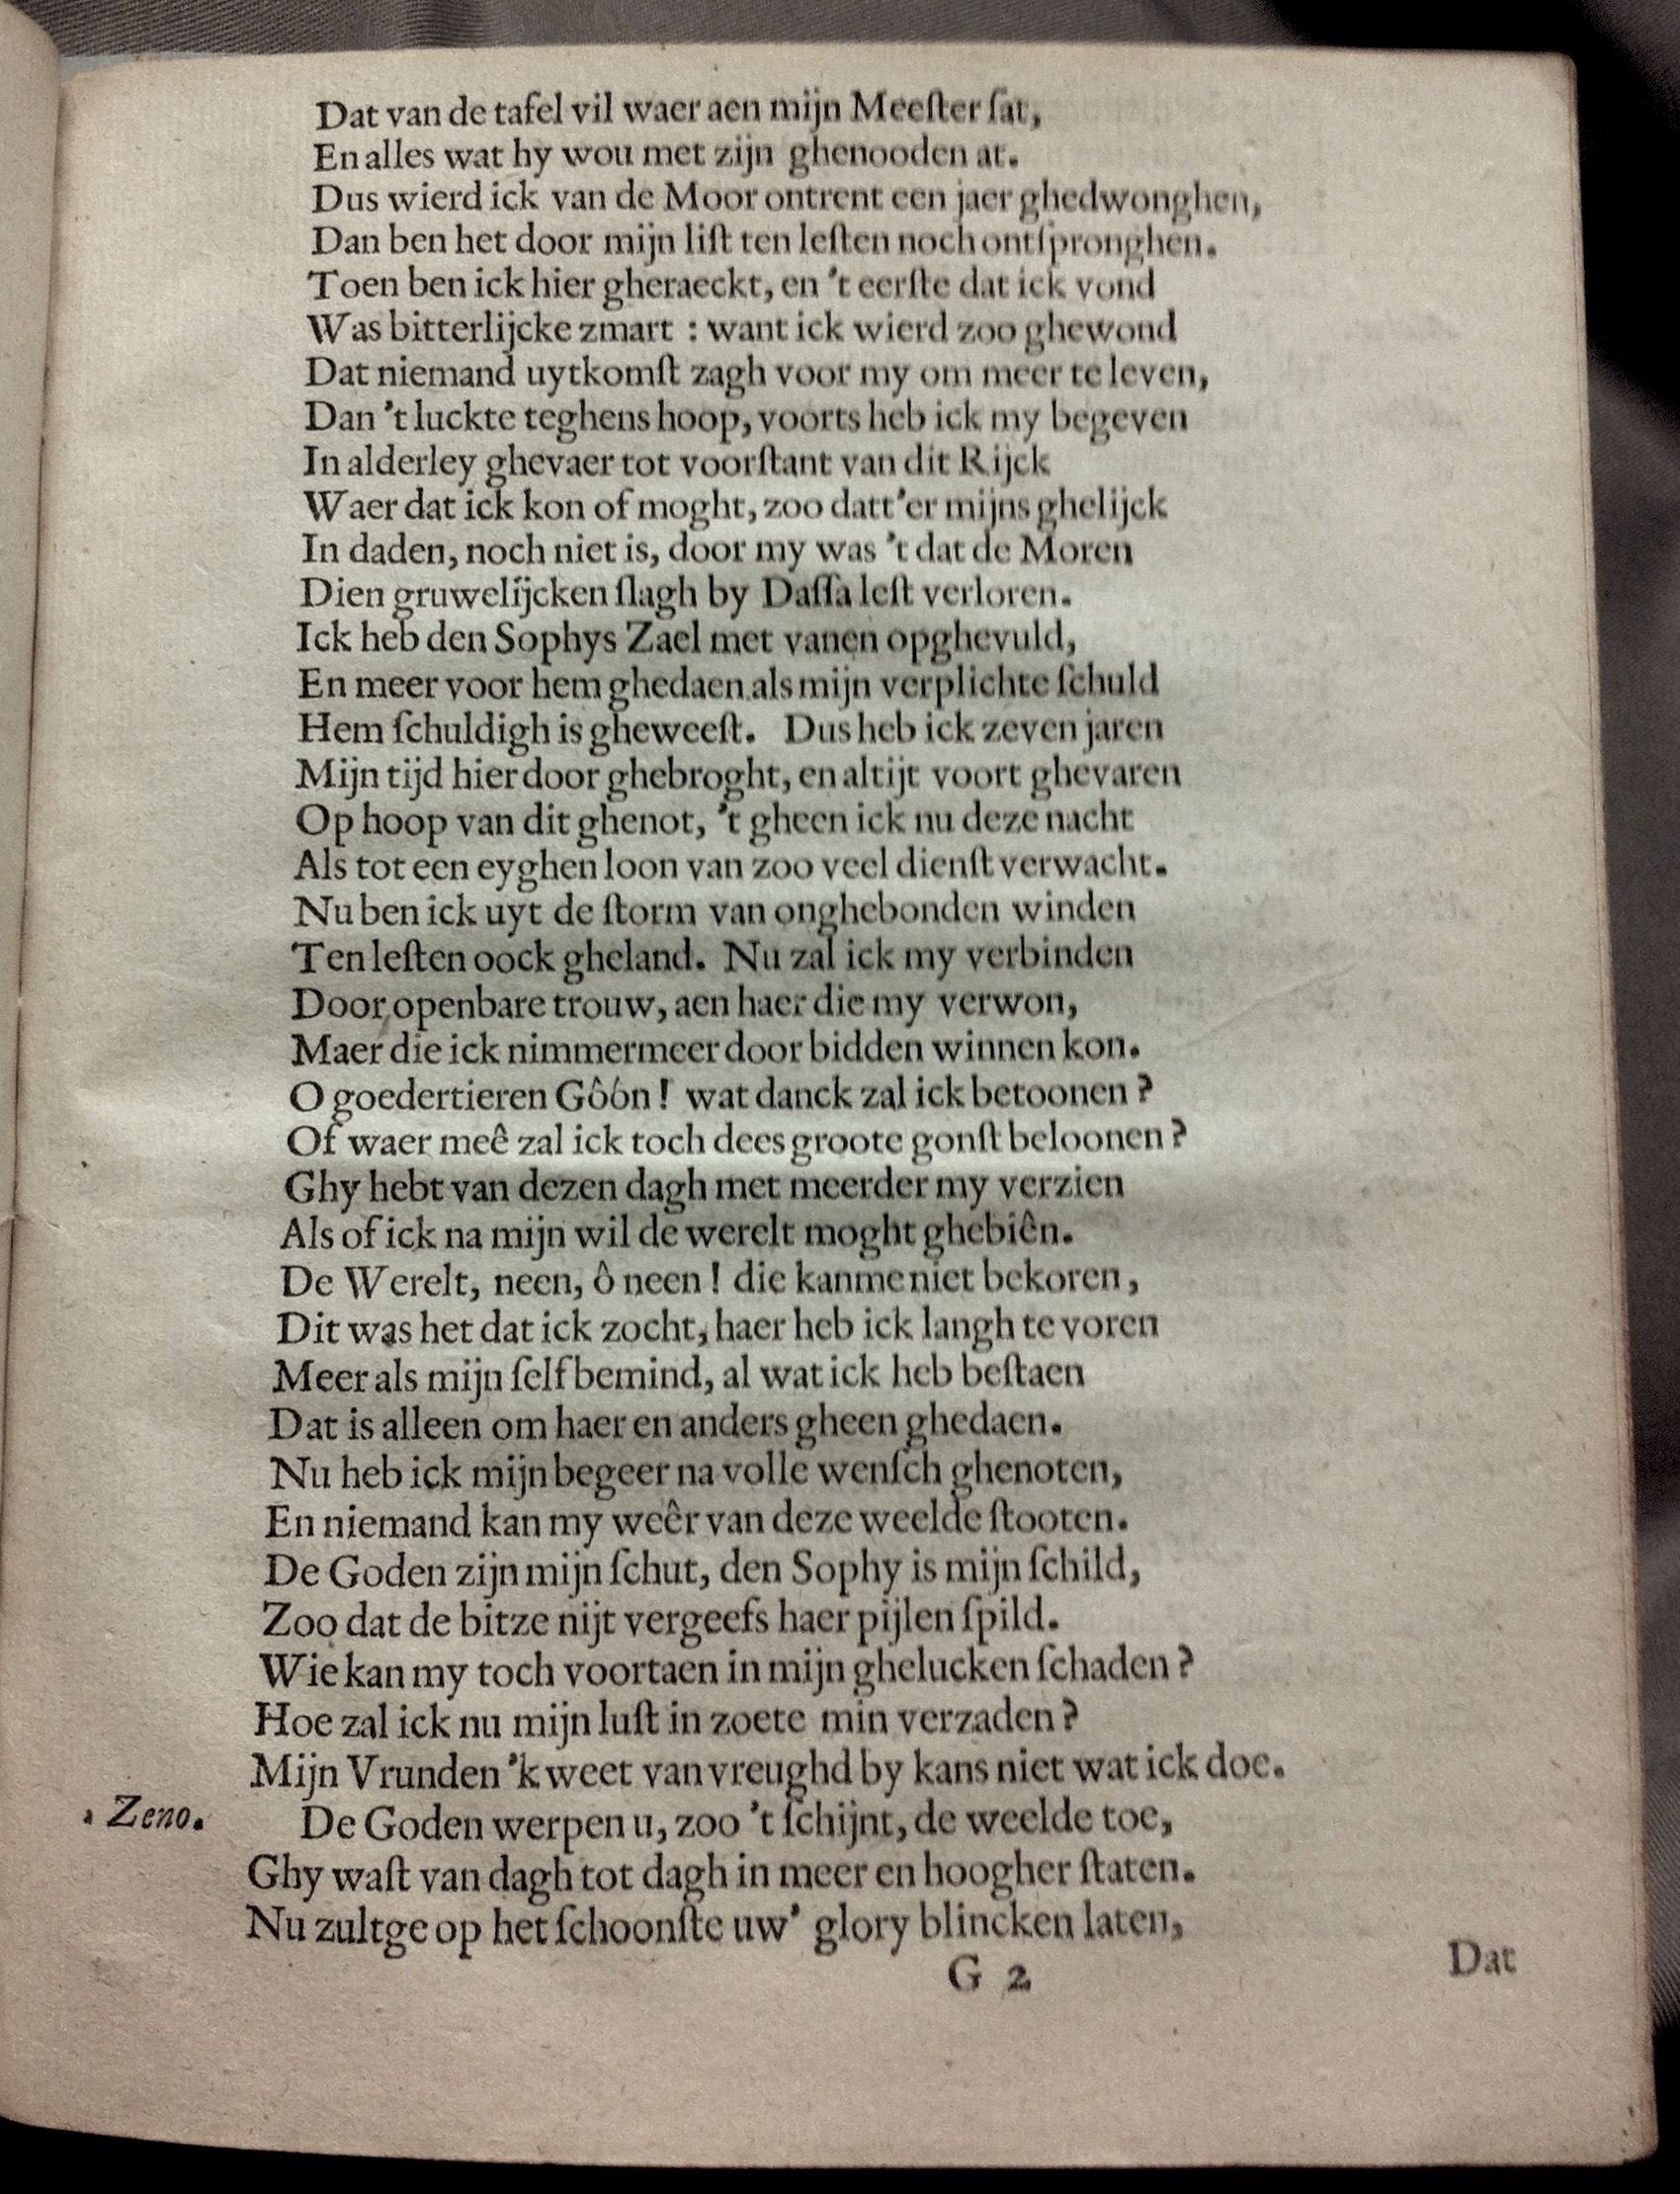 Dat van de tafel vil waer aen mijn Meeſter ſat,
En alles wat hy wou met zijn ghenooden at.
Dus wierd ick van de Moor ontrent een jaer ghedwonghen,
Dan ben het door mijn liſt ten leſten noch ontſpronghen.
Toen ben ick hier gheraeckt, en 't eerſte dat ick vond
Was bitterlijcke zmart : want ick wierd zoo ghewond
Dat niemand uytkomſt zagh voor my om meer te leven,
Dan 't luckte teghens hoop, voorts heb ick my begeven
In alderley ghevaer tot voorſtant van dit Rijck
Waer dat ick kon of moght, zoo datt'er mijns ghelijck
In daden, noch niet is, door my was 't dat de Moren
Dien gruwelijcken ſlagh by Daſſa leſt verloren.
Ick heb den Sophys Zael met vanen opghevuld,
En meer voor hem ghedaen als mijn verplichte ſchuld
Hem ſchuldigh is gheweeſt. Dus heb ick zeven jaren
Mijn tijd hier door ghebroght, en altijt voort ghevaren
Op hoop van dit ghenot, 't gheen ick nu deze nacht
Als tot een eyghen loon van zoo veel dienſt verwacht.
Nu ben ick uyt de ſtorm van onghebonden winden
Ten leſten oock gheland. Nu zal ick my verbinden
Door openbare trouw, aen haer die my verwon,
Maer die ick nimmermeer door bidden winnen kon.
O goedertieren Gôón! wat danck zal ick betoonen?
Of waer meê zal ick toch dees groote gonſt beloonen?
Ghy hebt van dezen dagh met meerder my verzien
Als of ick na mijn wil de werelt moght ghebiên.
De Werelt, neen, ô neen! die kanme niet bekoren,
Dit was het dat ick zocht, haer heb ick langh te voren
Meer als mijn ſelf bemind, al wat ick heb beſtaen
Dat is alleen om haer en anders gheen ghedaen.
Nu heb ick mijn begeer na volle wenſch ghenoten,
En niemand kan my weêr van deze weelde ſtooten.
De Goden zijn mijn ſchut, den Sophy is mijn ſchild,
Zoo dat de bitze nijt vergeefs haer pijlen ſpild.
Wie kan my toch voortaen in mijn ghelucken ſchaden?
Hoe zal ick nu mijn luſt in zoete min verzaden?
Mijn Vrunden 'k weet van vreughd by kans niet wat ick doe.
Zeno. De Goden werpen u, zoo 't ſchijnt, de weelde toe,
Ghy waſt van dagh tot dagh in meer en hoogher ſtaten.
Nu zultge op het ſchoonſte uw' glory blincken laten,
G 2
Dat